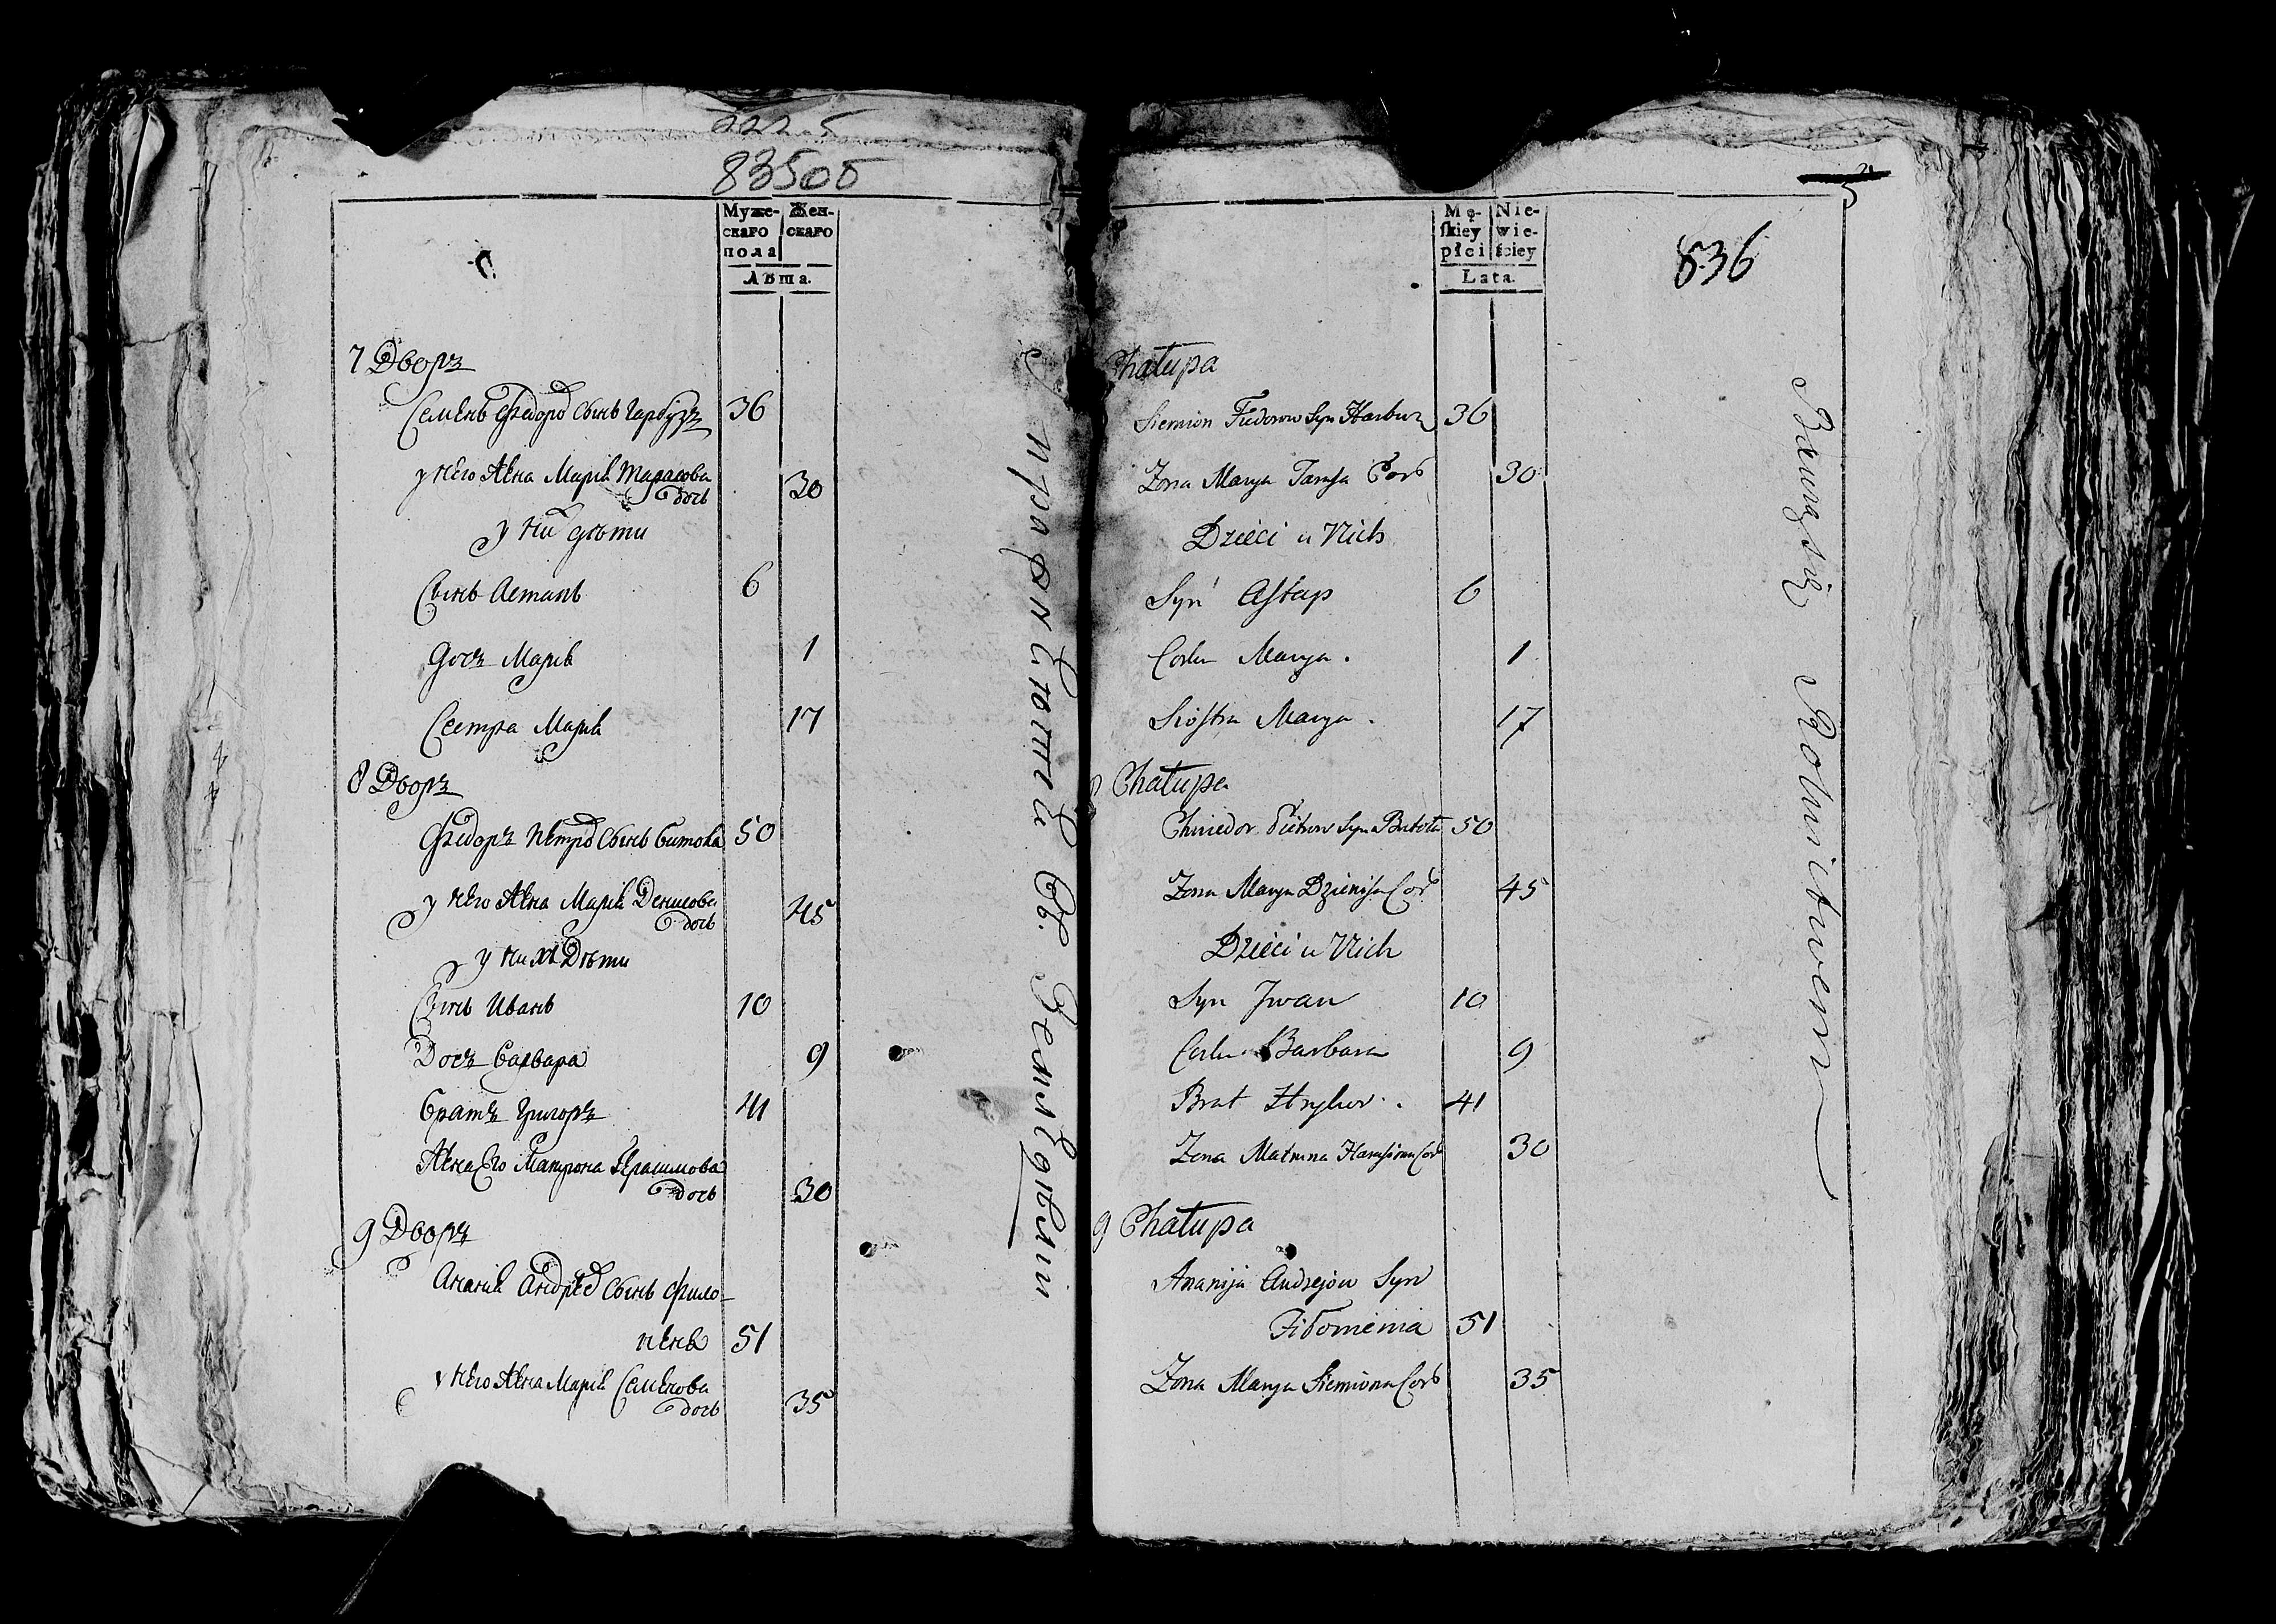 83505
Муже-
скаго
пола
Жен-
скаго
Лѣта.
7 Дворъ
Семенъ Федоров Сынъ Гарбузъ 36
у Него Жена Марія Тарасова
дочь 30
у них дѣти
Сынъ Астапъ 6
Дочъ Марія 1
Сестра Марія 17
8 Дворъ
Федоръ Петров Сынъ Битока 50
у Него Жена Марія Денисова
дочь 45
у них Дѣти
Сынъ Иванъ 10
Дочъ Варвара 9
Братъ Григоръ 41
Жена Его Матрона Герасимова
дочь 30
9 Дворъ
Ананія Андреев Сынъ Фило-
ненко 51
у Него Жена Марія Семенова
дочь 35
836
Mę-
ſkiey
płci
Nie-
wie-
ściey
Lata.
Chałupa
Siemion Fiedorow Syn Harbuz 36
Zona Marya Tarasa Cor 30
Dzieci u Nich
Syn Astap 6
Corka Marya. 1
Siostra Marya. 17
8 Chałupa
Chwiedor Pietrow Syn Bitoka 50
Zona Marya Dzienisa Cor 45
Dzieci u Nich
Syn Jwan 10
Corka Barbara 9
Brat Hryhor. 41
Zona Matruna Harasima Cor 30
9 Chałupa
Ananija Andrejow Syn
Fiłonienia 51
Zona Marya Siemiona Cor 35